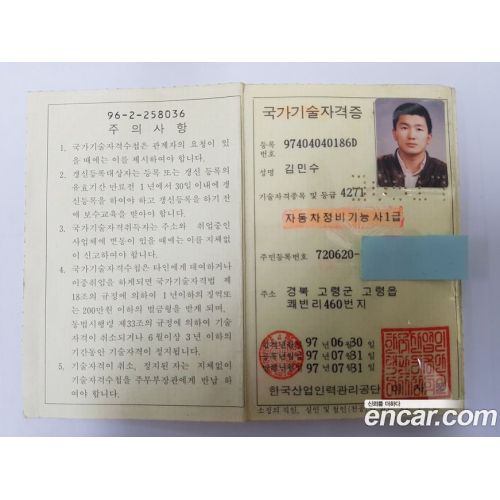 96-2-258036
주 의 사 항
1. 국가기술자격수첩은 관계자의 요청이 있
을 때에는 이를 제시하여야 합니다.
2. 갱신등록대상자는 등록 또는 갱신 등록의
유효기간 만료전 1년에서 30일 이내에 갱
신등록을 하여야 하고 갱신등록을 하기 전
에 보수교육을 받아야 합니다.
3. 국가기술자격취득자는 주소와 취업중인
사업체에 변동이 있을 때에는 이를 지체없
이 신고하여야 합니다.
4. 국가기술자격수첩은 타인에게 대여하거나
이중취업을 하게되면 국가기술자격법 제
18조의 규정에 의하여 1년이하의 징역또
는 200만원 이하의 벌금형을 받게 되며,
동법시행령 제33조의 규정에 의하여 기술
자격이 취소되거나 6월이상 3년 이하의
기간동안 기술자격이 정지됩니다.
5. 기술자격이 취소, 정지된 자는 지체없이
기술자격수첩을 주무부장관에게 반납 하
여야 합니다.
국가기술자격증
등록
번호 97404040186D
성명 김민수
기술자격종목 및 등급 4271
자동차정비기능사1급
주민등록번호 720620-
주소 경북 고령군 고령읍
쾌빈리460번지
합격년월일 97 년 06 월 30 일
등록년월일 97 년 07 월 31 일
발행년월일 97 년 07 월 31 일
한국산업인력관리공단
소정의 직인, 실인 및 철인(천공)
신뢰를 더하다
encar.com